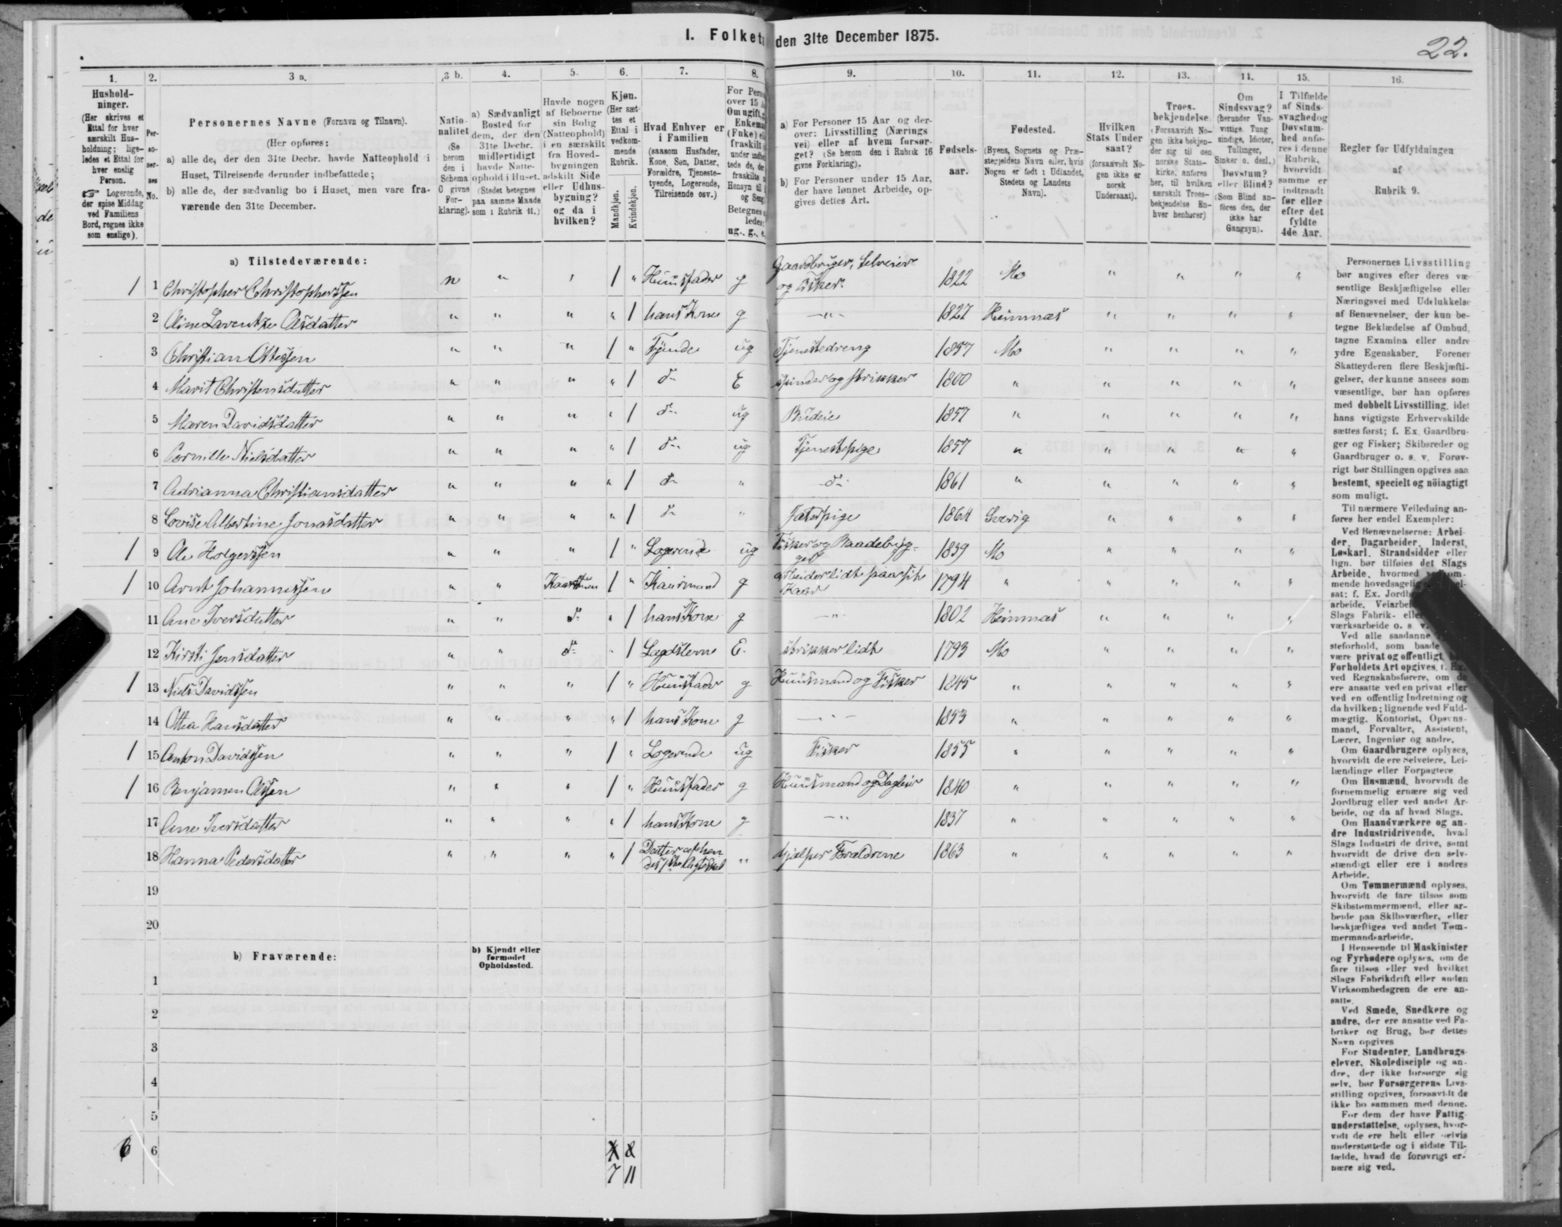 I. Folket
den 31te December 1875.
22.
1.
2.
3 a.
3 b.
4.
5.
6.
7.
8.
9.
10.
11.
12.
13.
14.
15.
16.
Hushold-
ninger.
(Her skrives et
Ettal for hver
særskilt Hus-
holdning; lige-
ledes et Ettal for
hver enslig
Person.
☞ Logerende,
der spise Middag
ved Familiens
Bord, regnes ikke
som enslige).
Per-
so-
ner-
ses
No.
Personernes Navne (Fornavn og Tilnavn).
(Her opføres:
a) alle de, der den 31te Decbr. havde Natteophold i
Huset, Tilreisende derunder indbefattede;
b) alle de, der sædvanlig bo i Huset, men vare fra-
værende den 31te December.
Natio-
nalitet
(Se
herom
den
Schema
O givne
For-
klaring).
a) Sædvanligt
Bosted for
dem, der den
31te Decbr.
midlertidigt
havde Natte-
ophold i Huset.
(Stedet betegnes
paa samme Maade
som i Rubrik 11.)
Havde nogen
af Beboerne
sin Bolig
(Natteophold)
i en særskilt
fra Hoved-
bygningen
adskilt Side
eller Udhus-
bygning?
og da i
hvilken?
Kjøn.
(Her sæt-
tes et
Ettal i
vedkom-
mende
Rubrik.
Mandkjøn.
Kvindekjøn.
Hvad Enhver er
i Familien
(saasom Husfader,
Kone, Søn, Datter,
Forældre, Tjeneste-
tyende, Logerende,
Tilreisende osv.)
For Pers
over 15 A
Om ugift, g
Enkema
(Enke) el
fraskilt
a) For Personer 15 Aar og der-
over: Livsstilling (Nærings
vei) eller af hvem forsør-
get? (Se herom den i Rubrik 16
givne Forklaring).
b) For Personer under 15 Aar,
der have lønnet Arbeide, op-
gives dettes Art.
Fødsels-
aar.
Fødested.
(Byens, Sognets og Præ-
stegjeldets Navn eller, hvis
Nogen er født i Udlandet,
Stedets og Landets
Navn).
Hvilken
Stats Under
saat?
(forsaavidt No-
gen ikke er
norsk
Undersaat).
Troes.
bekjendelse
(Forsaavidt No-
gen ikke bekjen-
der sig til den
norske Stats-
kirke, anføres
her, til hvilken
særskilt Troes-
bekjendelse En-
hver henhører)
Om
Sindssvag?
(herunder Van-
vittige, Tung
sindige, Idioter,
Tullinger,
Sinker o. desl.)
Døvstum?
eller Blind?
(Som Blind an-
føres den, der
ikke har
Gangsyn).
I Tilfælde
af Sinds-
svaghed og
Døvstum-
hed anfø-
res i denne
Rubrik,
hvorvidt
samme er
indtraadt
før eller
efter det
fyldte
4de Aar.
Regler for Udfyldningen
af
Rubrik 9.
a) Tilstedeværende:
1 1 Christopher Christophersen n " " 1 " Huusfader g Gaardbruger, Selveier og Fisker. 1822 Mo
2 Aline Larentze Olsdatter " " " " 1 hans Kone g —"— 1827 Hemnæs
3 Christian Ottessen " " " 1 " Tyende ug Tjenestedreng 1857 Mo
4 Marit Christensdatter " " " " 1 d- E spinder og strikker 1800 "
5 Maren Davidsdatter " " " " 1 d- ug Budeie 1857 "
6 Pernille Nielsdatter " " " " 1 d- ug Tjenestepige 1857 "
7 Adrianna Christiansdatter " " " " 1 d- " d- 1861 "
8 Lovise Albertine Jonasdatter " " " " 1 d- " Jæterpige 1861 Sverig
1 9 Ole Holgersen " " " 1 " Logerende ug Fisker og Baadebyg- ger 1839 Mo
1 10 Arnt Johannessen " " 1 " Kaarmand g arbeider lidt paa sit Kaar 1794 "
11 Ane Iversdatter " " d- " 1 hans Kone g —"— 1802 Hemnæs
12 Kirsti Jensdatter " " d- " 1 Lægdslem E. strikker lidt 1793 Mo
1 13 Niels Davidsen " " " 1 " Huusfader g Huusmand og Fisker 1845 "
14 Ottea Hansdatter " " " " 1 hans Kone g —"— 1853 "
1 15 Anton Davidsen " " " 1 " Logerende ug Fisker 1855 "
1 16 Benjamen Olsen " " " 1 " Huusfader g Huusmand og 1840 "
17 Ane Iversdatter " " " " 1 hans Kone g —"— 1837 "
18 Hanna Pedersdatter " " " " 1 Datter af hendes 1ste Ægteskab " hjælper Forældrene 1863 "
19
20
b) Fraværende:
b) Kjendt eller
formodet
Opholdssted.
1
2
3
4
5
6 6
7 11
Personernes Livsstilling
bør angives efter deres væ
sentlige Beskjæftigelse eller
Næringsvei med Udelukkelse
af Benævnelser, der kun be-
tegne Beklædelse af Ombud,
tagne Examina eller andre
ydre Egenskaber. Forener
Skatteyderen flere Beskjæfti-
gelser, der kunne ansees som
væsentlige, bør han opføres
med dobbelt Livsstilling, idet
hans vigtigste Erhvervskilde
sættes først; f. Ex. Gaardbru-
ger og Fisker; Skibsreder og
Gaardbruger o. s. v. Forøv-
rigt bør Stillingen opgives saa
bestemt, specielt og nöiagtigt
som muligt.
Til nærmere Veiledning an-
føres her endel Exempler:
Ved Benævnelserne: Arbei-
der, Dagarbeider, Inderst,
Løskarl, Strandsidder eller
lign. bør tilføies det Slags
Arbeide, hvormed
mende hovedsagelig
sat; f. Ex. Jordb
arbeide, Veiarbe
Slags Fabrik- elle
værksarbeide o. s. v.
Ved alle saadanne
steforhold, som baade
være privat og offentligt
Forholdets Art opgives, f. Ex.
ved Regnskabsførere, om de
ere ansatte ved en privat eller
ved en offentlig Indretning og
da hvilken; lignende ved Fuld-
mægtig, Kontorist, Opsyns-
mand, Forvalter, Assistent,
Lærer, Ingeniør og andre.
Om Gaardbrugere oplyses,
hvorvidt de ere Selveiere, Lei-
lændinge eller Forpagtere
Om Husmænd, hvorvidt de
fornemmelig ernære sig ved
Jordbrug eller ved andet Ar-
beide, og da af hvad Slags.
Om Haandværkere og an-
dre Industridrivende, hvad
Slags Industri de drive, samt
hvorvidt de drive den selv-
stændigt eller ere i andres
Arbeide.
Om Tømmermænd oplyses,
hvorvidt de fare tilsøs som
Skibstømmermænd, eller ar-
beide paa Skibsværfter, eller
beskjæftiges ved andet Tøm-
mermandsarbeide.
I Henseende til Maskinister
og Fyrbødere oplyses, om de
fare tilsøs eller ved hvilket
Slags Fabrikdrift eller anden
Virksomhedsgren de ere an-
satte.
Ved Smede, Snedkere og
andre, der ere ansatte ved Fa-
briker og Brug, bør dettes
Navn opgives
For Studenter, Landbrugs-
elever, Skoledisciple og an-
dre, der ikke forsørge sig
selv, bør Forsørgerens Livs-
stilling opgives, forsaavidt de
ikke bo sammen med denne.
For dem der have Fattig-
understøttelse, oplyses, hvor-
vidt de ere helt eller delvis
understøttede og i sidste Til-
fælde, hvad de forøvrigt er-
nære sig ved.